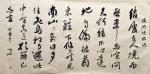 結廬在人境而
無車馬喧問君
何能爾心遠
地自偏採菊
東籬下悠然見
南山山氣日夕
佳飛鳥相與還
此中有真意欲
辨已忘言